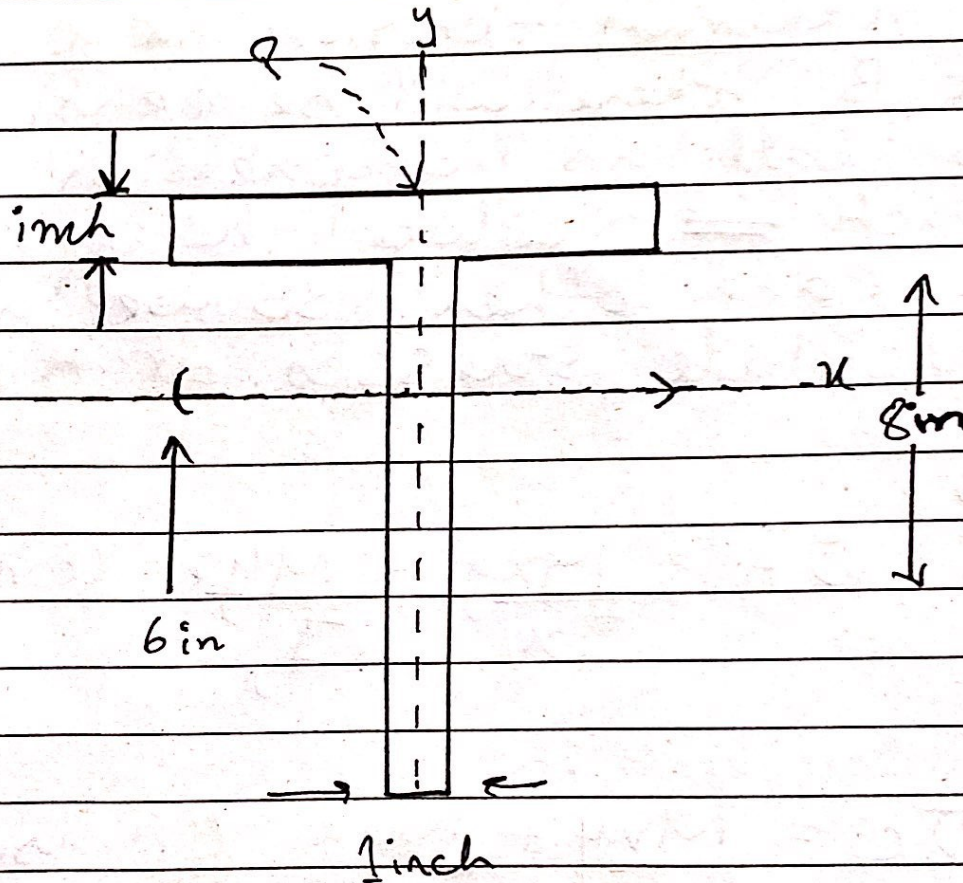 y
P
inch
x
8in
6 in
1inch